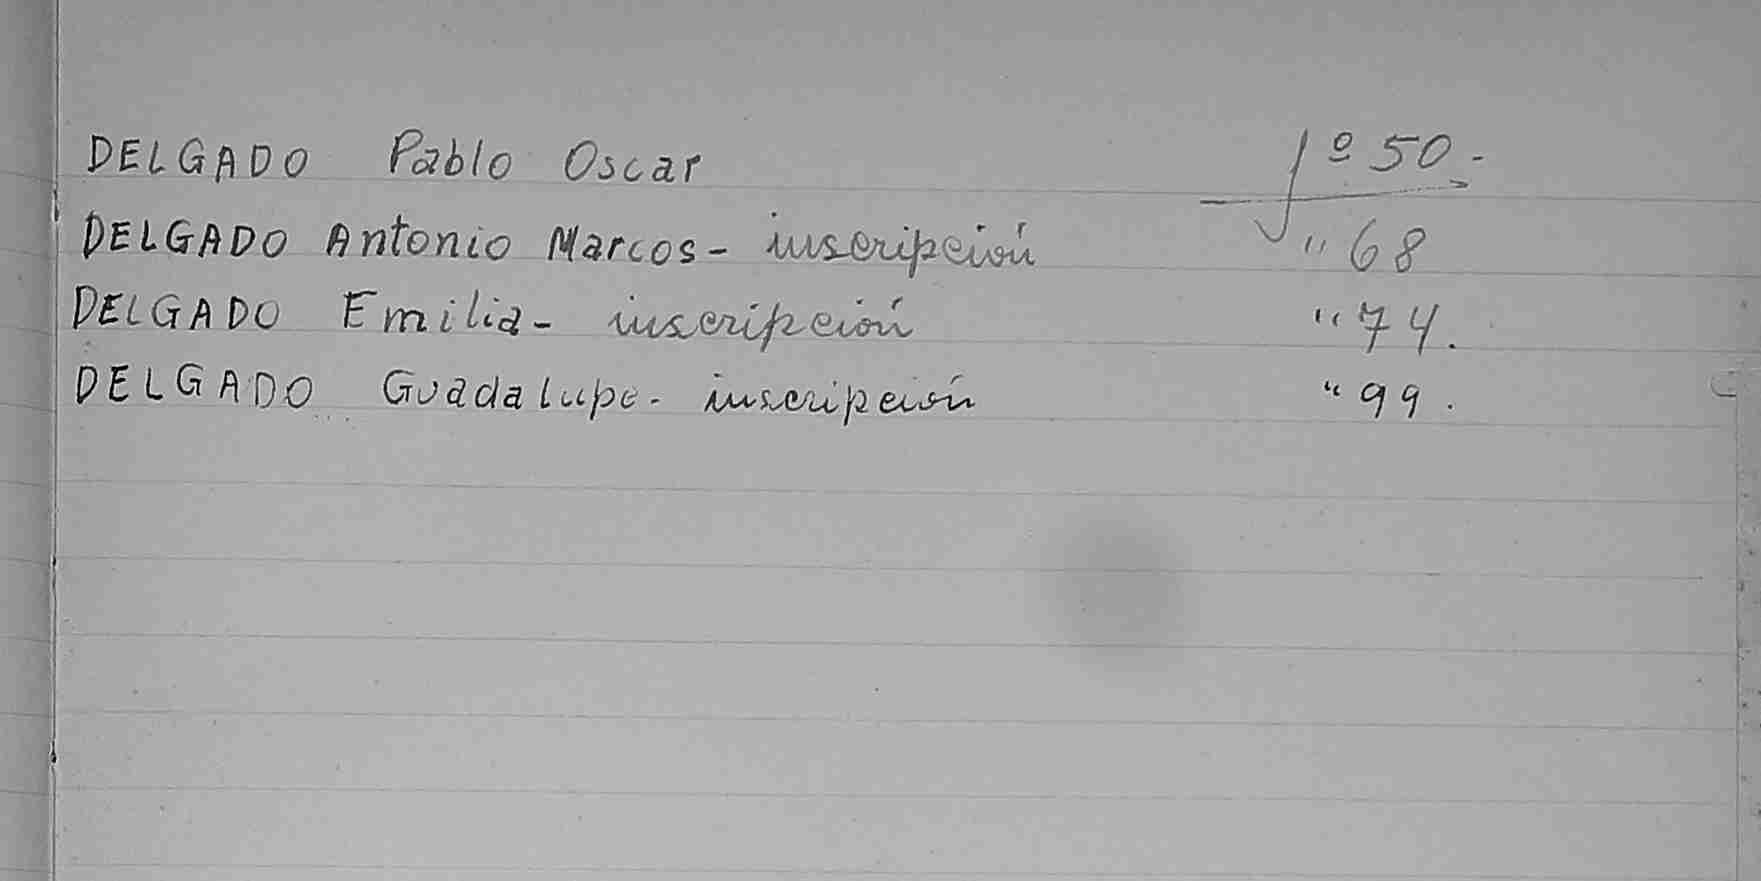 DELGADO Pablo Oscar fº 50.-
DELGADO Antonio Marcos - inscripción " 68
DELGADO Emilia - inscripción " 74.
DELGADO Guadalupe - inscripción " 99.